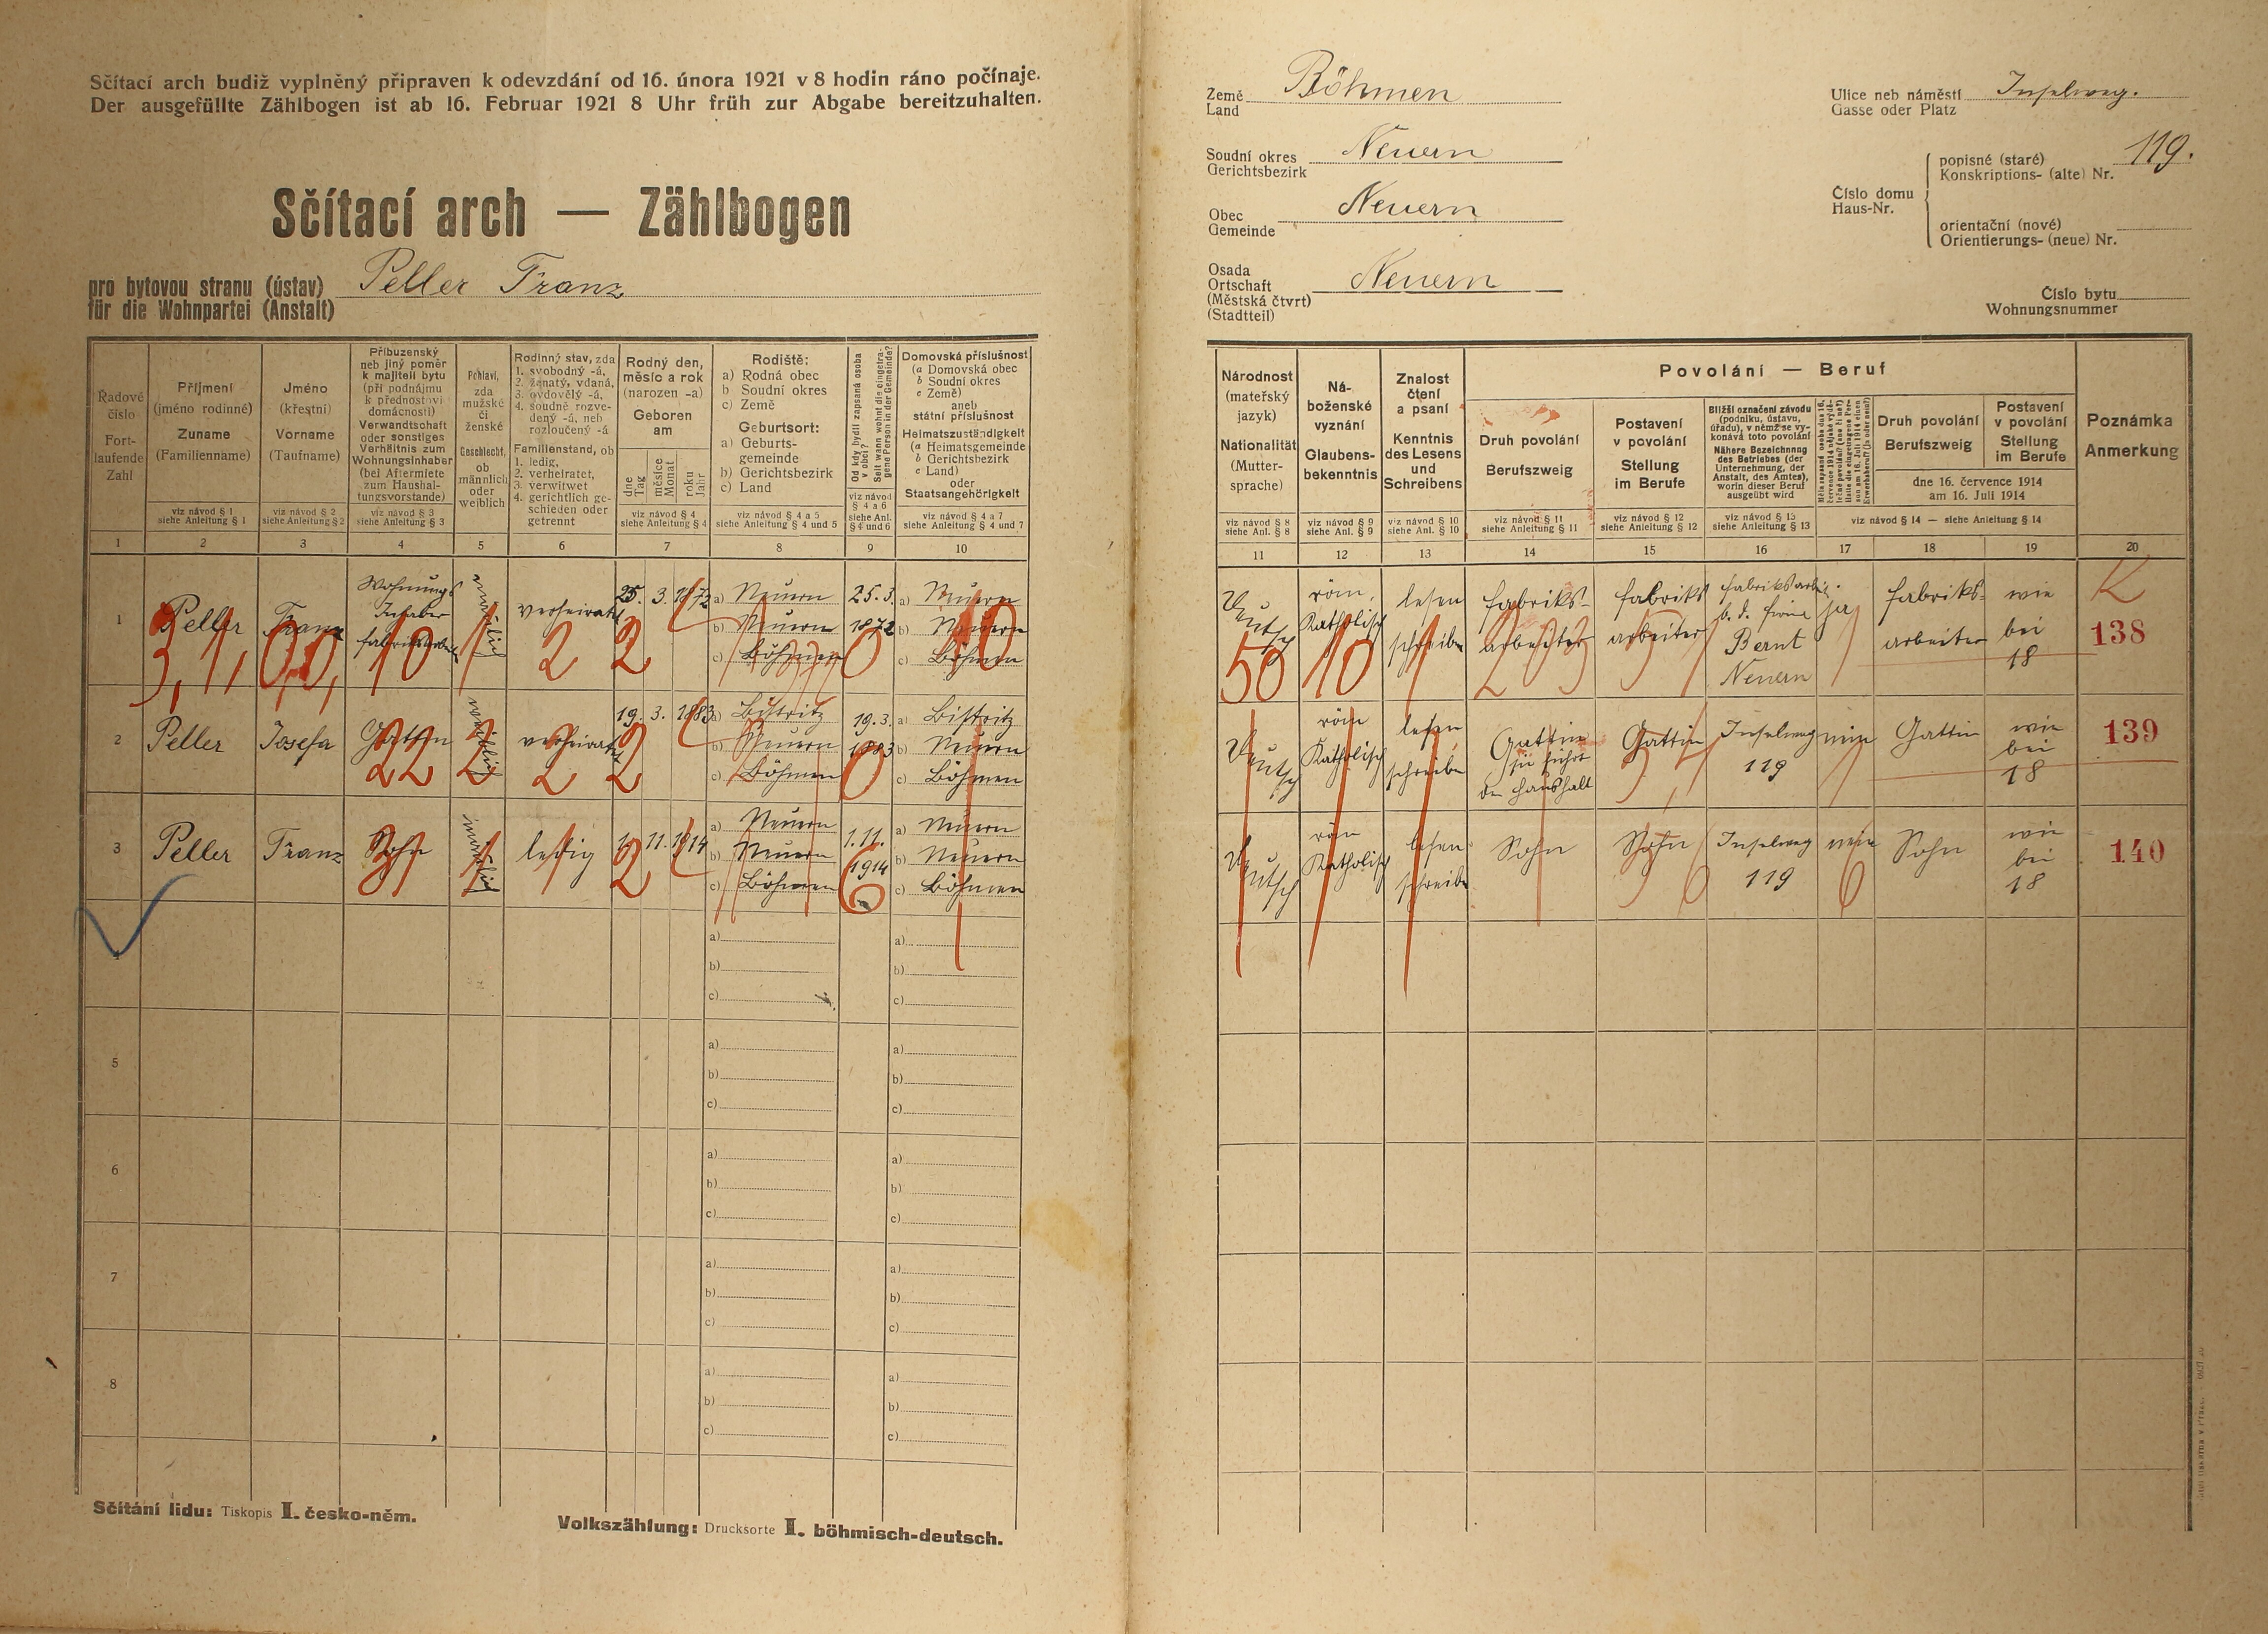 Sčítací arch budiž vyplněný připraven k odevzdání od 16. února 1921 v 8 hodin ráno počínaje.
Der ausgefüllte Zählbogen ist ab 16. Februar 1921 8 Uhr früh zur Abgabe bereitzuhalten.
Sčítací arch — Zählbogen
pro bytovou stranu (ústav)
für die Wohnpartei (Anstalt)
Peller Franz
Země
Land
Böhmen
Soudní okres
Gerichtsbezirk
Neuern
Obec
Gemeinde
Neuern
Osada
Ortschaft
(Městská čtvrť)
(Stadtteil)
Neuern
Ulice neb náměstí
Gasse oder Platz
Inselweg.
Číslo domu
Haus-Nr.
popisné (staré)
Konskriptions- (alte) Nr.
119.
orientační (nové)
Orientierungs- (neue) Nr.
Číslo bytu
Wohnungsnummer
Řadové
číslo
Fort-
laufende
Zahl
Příjmení
(jméno rodinné)
Zuname
(Familienname)
viz návod § 1
siehe Anleitung § 1
Jméno
(křestní)
Vorname
(Taufname)
viz návod § 2
siehe Anleitung § 2
Příbuzenský
neb jiný poměr
k majiteli bytu
(při podnájmu
k přednostovi
domácnosti)
Verwandtschaft
oder sonstiges
Verhältnis zum
Wohnungsinhaber
(bei Aftermiete
zum Haushal-
tungsvorstande)
viz návod § 3
siehe Anleitung § 3
Pohlaví,
zda
mužské
či
ženské
Geschlecht,
ob
männlich
oder
weiblich
Rodinný stav, zda
1. svobodný -á,
2. ženatý, vdaná,
3. ovdovělý -á,
4. soudně rozve-
dený -á, neb
rozloučený -á
Familienstand, ob
1. ledig,
2. verheiratet,
3. verwitwet
4. gerichtlich ge-
schieden oder
getrennt
Rodný den,
měsíc a rok
(narozen -a)
Geboren
am
dne
Tag
měsíce
Monat
roku
Jahr
viz návod § 4
siehe Anleitung § 4
Rodiště:
a) Rodná obec
b) Soudní okres
c) Země
Geburtsort:
a) Geburts-
gemeinde
b) Gerichtsbezirk
c) Land
viz návod § 4 a 5
siehe Anleitung § 4 und 5
Od kdy bydlí zapsaná osoba
v obci?
Seit wann wohnt die eingetra-
gene Person in der Gemeinde?
viz návod
§ 4 a 6
siehe Anl.
§ 4 und 6
Domovská příslušnost
(a Domovská obec
b Soudní okres
c Země)
aneb
státní příslušnost
Heimatszuständigkeit
(a Heimatsgemeinde
b Gerichtsbezirk
c Land)
oder
Staatsangehörigkeit
viz návod § 4 a 7
siehe Anleitung § 4 und 7
Národnost
(mateřský
jazyk)
Nationalität
(Mutter-
sprache)
viz návod § 8
siehe Anl. § 8
Ná-
boženské
vyznání
Glaubens-
bekenntnis
viz návod § 9
siehe Anl. § 9
Znalost
čtení
a psaní
Kenntnis
des Lesens
und
Schreibens
viz návod § 10
siehe Anl. § 10
Povolání — Beruf
Druh povolání
Berufszweig
viz návod § 11
siehe Anleitung § 11
Postavení
v povolání
Stellung
im Berufe
viz návod § 12
siehe Anleitung § 12
Bližší označení závodu
(podniku, ústavu,
úřadu), v němž se vy-
konává toto povolání
Nähere Bezeichnung
des Betriebes (der
Unternehmung, der
Anstalt, des Amtes),
worin dieser Beruf
ausgeübt wird
viz návod § 13
siehe Anleitung § 13
Druh povolání
Berufszweig
Postavení
v povolání
Stellung
im Berufe
dne 16. července 1914
am 16. Juli 1914
viz návod § 14 — siehe Anleitung § 14
Poznámka
Anmerkung
1 2 3 4 5 6 7 8 9 10
11 12 13 14 15 16 17 18 19 20
1 Peller Franz
Wohnungs
Inhaber
männlich
verheiratet
25. 3. 1872
a) Neuern
b) Neuern
c) Böhmen
25. 3.
1872
a) Neuern
b) Neuern
c) Böhmen
Deutsch
röm.
Katholisch
lesen
schreiben
fabriks-
arbeiter
fabriks
arbeiter
fabriksarbeit.
b. d. firma
Bernt
Neuern
ja
fabriks-
arbeiter
wie
bei
18
K
138
3, 1, 00, 10 1 2 2 0 10
50 10 1 203 5
2 Peller Josefa Gattin weiblich verheiratet
19. 3. 1883
a) Bistritz
b) Neuern
c) Böhmen
19. 3.
1883
a) Bistritz
b) Neuern
c) Böhmen
Deutsch
röm
Katholisch
lesen
schreiben
Gattin
sie führt
den Haushalt
Gattin
Inselweg
119
nein
Gattin
wie
bei
18
139
22 2 2 2 0
3 Peller Franz Sohn männlich ledig
1. 11. 1914
a) Neuern
b) Neuern
c) Böhmen
1. 11.
1914
a) Neuern
b) Neuern
c) Böhmen
Deutsch
röm
Katholisch
lesen
schreiben
Sohn
Sohn
Inselweg
119
nein
Sohn
wie
bei
18
140
31 1 1 2 6
4
a)
b)
c)
a)
b)
c)
5
a)
b)
c)
a)
b)
c)
6
a)
b)
c)
a)
b)
c)
7
a)
b)
c)
a)
b)
c)
8
a)
b)
c)
a)
b)
c)
Sčítání lidu: Tiskopis I. česko-něm.
Volkszählung: Drucksorte I. böhmisch-deutsch.